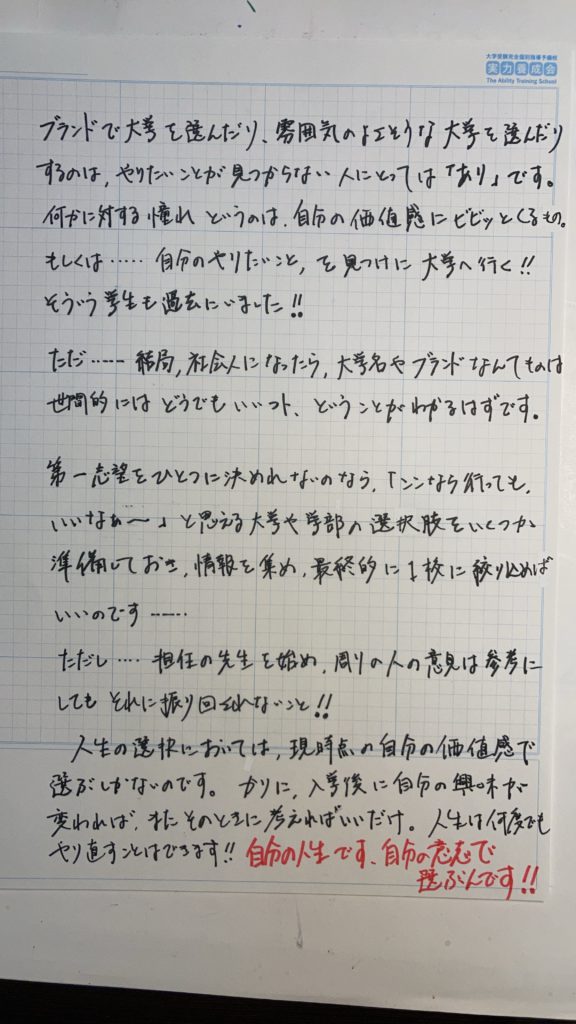 大学受験完全個別指導予備校
実力養成会
The Ability Training School
ブランドで大学を選んだり、雰囲気のよさそうな大学を選んだり
するのは、やりたいことが見つからない人にとっては「あり」です。
何かに対する憧れというのは、自分の価値感にビビッとくるもの。
もしくは…… 自分のやりたいこと、を見つけに大学へ行く!!
そういう学生も過去にいました!!
ただ…… 結局、社会人になったら、大学名やブランドなんてものは
世間的にはどうでもいいっ、ということがわかるはずです。
第一志望をひとつに決めれないのなら、「ココなら行っても、
いいなぁ〜」と思える大学や学部の選択肢をいくつか
準備しておき、情報を集め、最終的に1枚に絞り込めば
いいのです……
ただし…… 担任の先生を始め、周りの人の意見は参考に
してもそれに振り回されないこと!!
人生の選択においては、現時点の自分の価値感で
選ぶしかないのです。かりに、入学後に自分の興味が
変われば、またそのときに考えればいいだけ。人生は何度でも
やり直すことはできます!! 自分の人生です、自分の意志で
選ぶんです!!